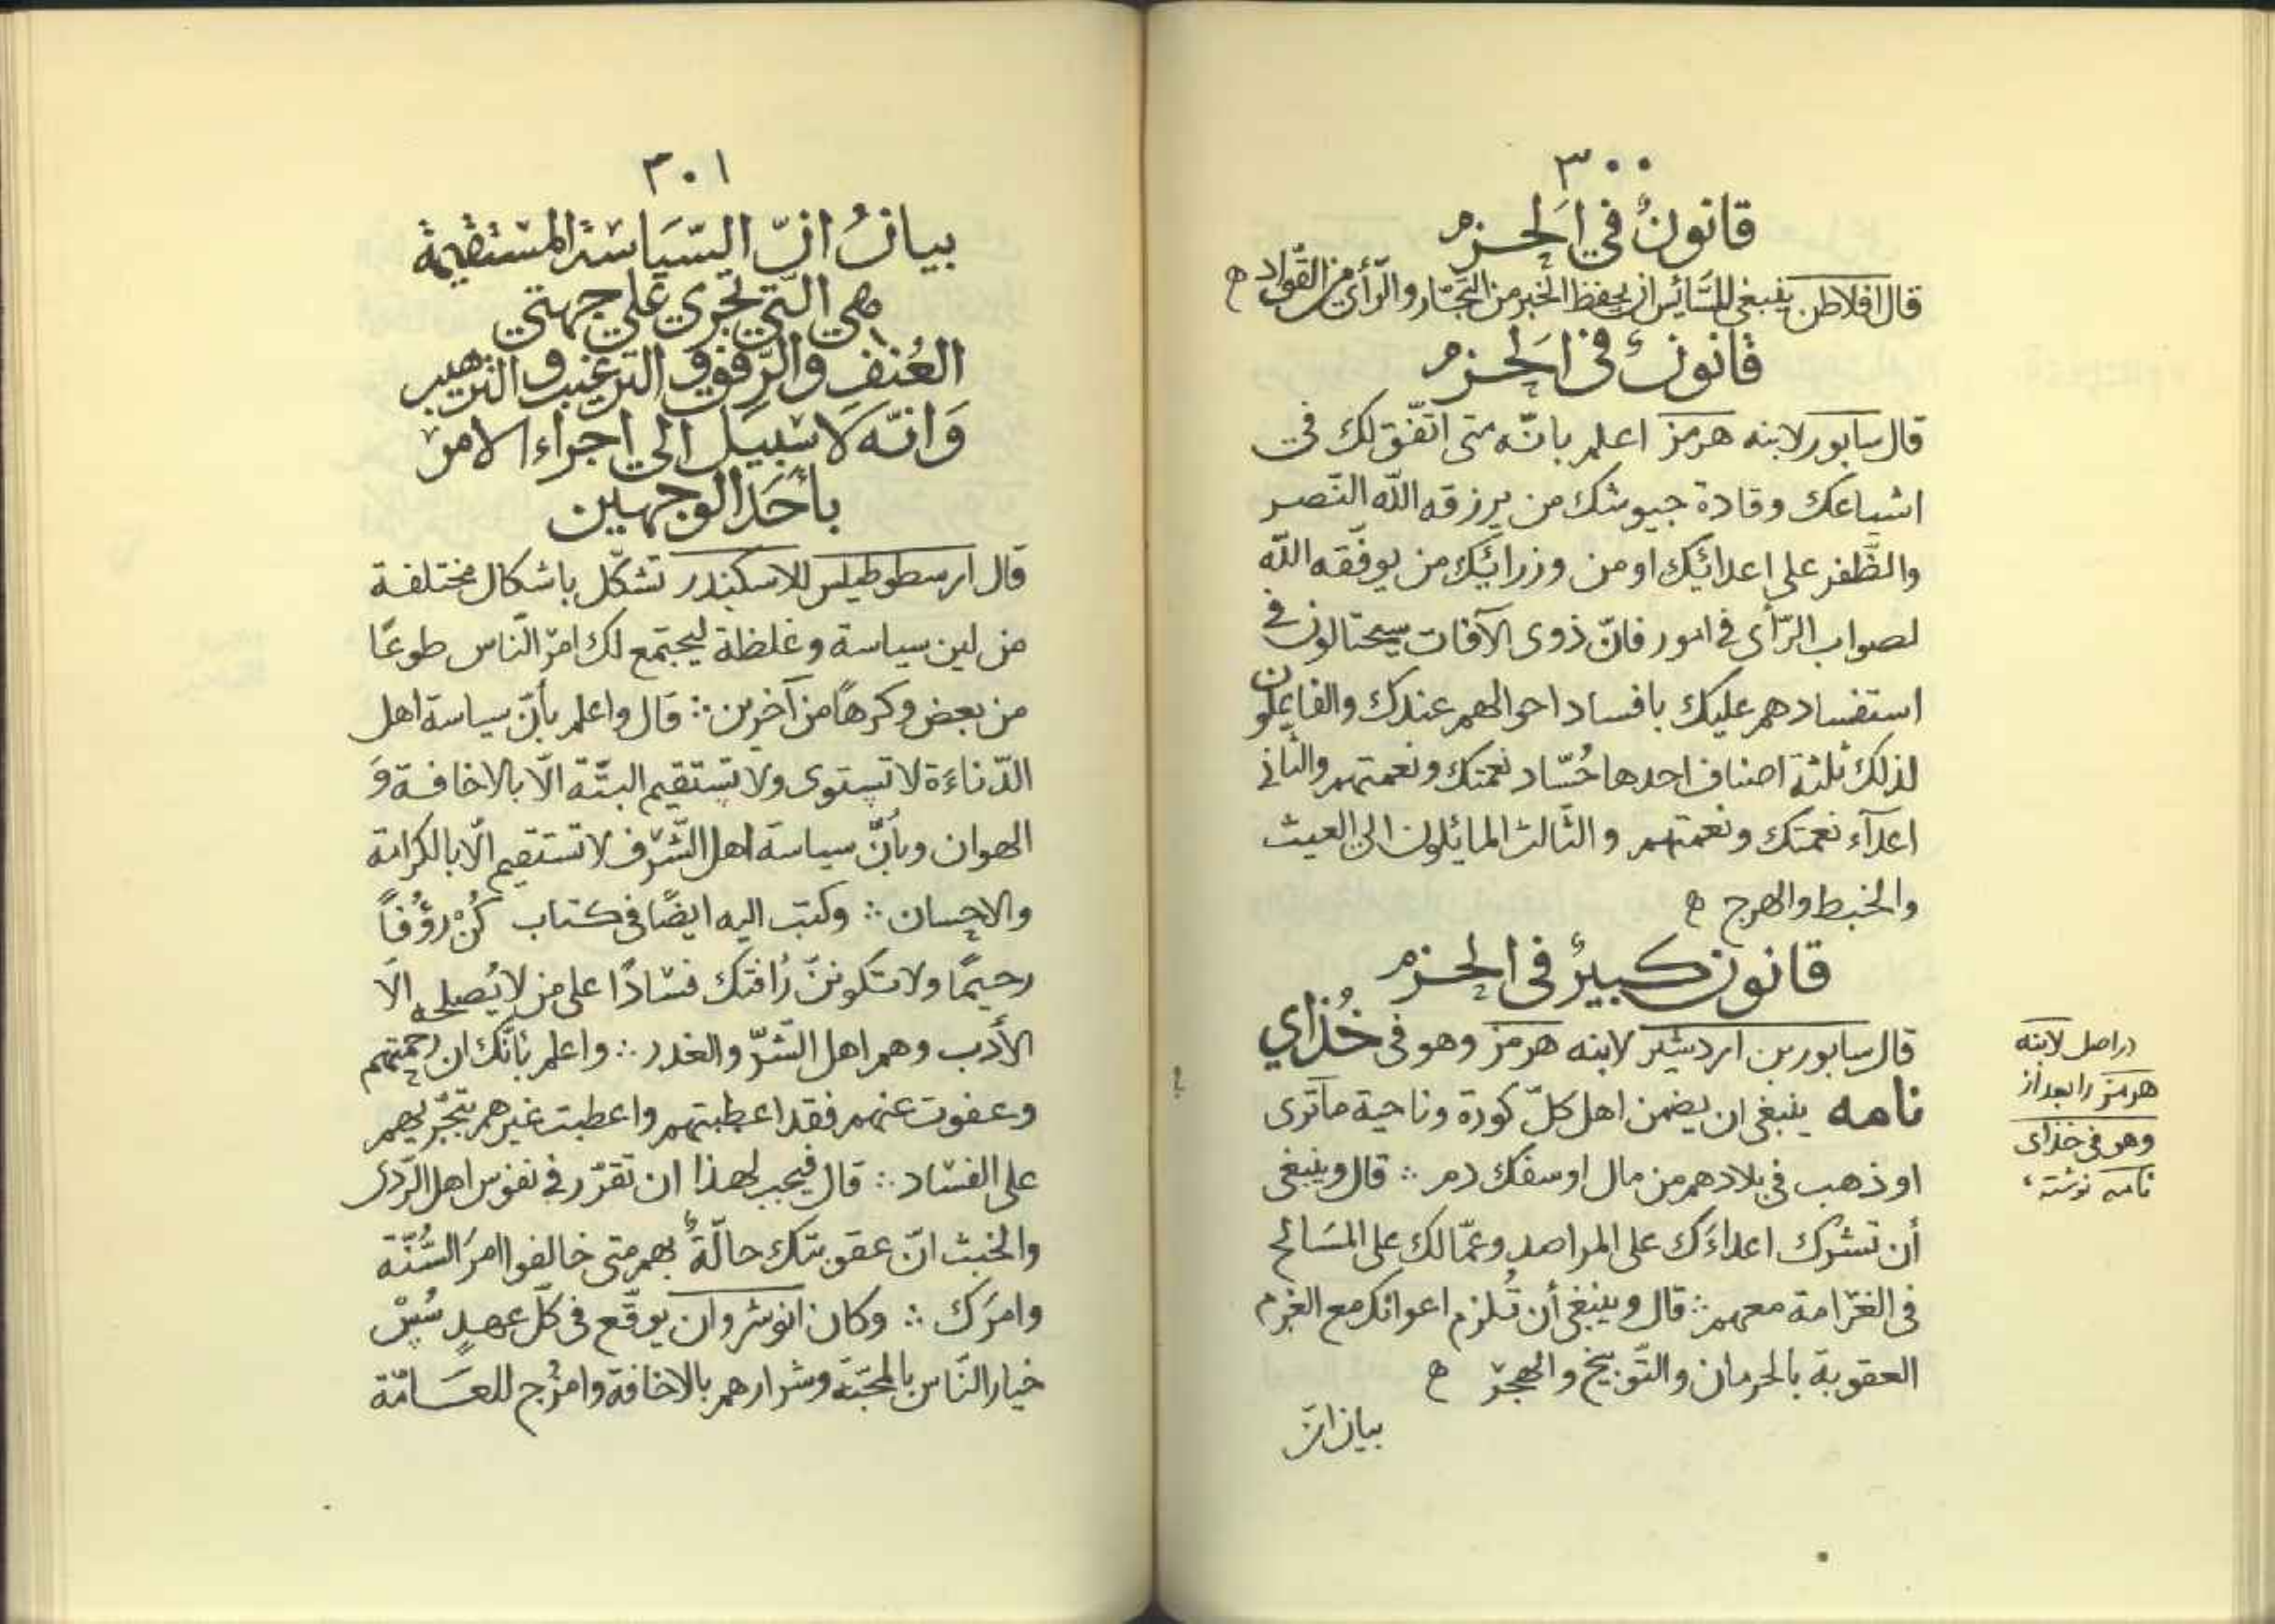 ٣٠٠
قانونٌ في الحزم
قال افلاطن ينبغى للسّائس ان يحفظ الخبر من التجّار والرّأى من القوّاد
قانونٌ فى الحزم
قال سابور لابنه هرمز اعلم بانّه متى اتّفق لك فى
اشياعك وقادة جيوشك من يرزقه اللّه النّصر
والظّفر على اعدائك او من وزرائك من يوفّقه اللّه
لصواب الرّأى فى امور فانّ ذوى الآفات سيحتالون فى
استفسادهم عليك بافساد احوالهم عندك والفاعلون
لذلك ثلثة اصناف احدها حُسّاد نعمتك ونعمتهم والثانى
اعدآء نعمتك ونعمتهم والثالث المائلون الى العيث
والخبط والهرج
قانون كبيرٌ فى الحزم
قال سابور بن اردشير لابنه هرمز وهو فى خُذاي
نامه ينبغى ان يضمن اهل كلّ كورة وناحية ما ترى
او ذهب فى بلادهم من مال او سفك دم ∴ قال وينبغى
أن تشرك اعداءَك على المراصد وعمّالك على المسَالح
فى الغرّامة معهم ∴ قال وينبغى أن تُلزم اعوانك مع الغرم
العقوبة بالحرمان والتّوبيخ والهجر
بيان انّ
در اصل لابنه
هرمز را بعد از
وهو فى خذاى
نامه نوشته،
٣٠١
بيانُ انّ السّيَاسة المستقيمة
هي التّي تجري على جهتي
العُنف والرّفق و الترغيب و الترهيب
وَانّه لَا سبيَل الى اجراء الامر
بأحَد الوجهين
قال ارسطوطيلس للاسكندر تشكّل باشكال مختلفة
من لين سياسة وغلظة ليجتمع لك امر النّاس طوعًا
من بعض وكرهًا من آخرين ∴ قال واعلم بأنّ سياسة اهل
الدّناءَة لا تستوى ولا تستقيم البتّة الّا بالاخافة وَ
الهوان وبأنّ سياسة اهل الشّرف لا تستقيم الّا بالكرامة
والاحسان ∴ وكتب اليه ايضًا فى كتاب كُنْ رؤُفاً
رحيمًا ولا تكوننّ رُافتك فسادًا على من لا يُصلحه الّا
الأدب وهم اهل الشّرّ والغدر ∴ واعلم بانّك ان رحمتهم
وعفوت عنهم فقد اعطبتهم واعطبت غيرهم بتجرّيهم
على الفساد ∴ قال فيجب لهذا ان تقرّر فى نفوس اهل الرّدى
والخبث انّ عقوبتك حالّةٌ بهم متى خالفوا امرَ السُّنّة
وامرَك ∴ وكان انوشروان يوقّع فى كلّ عهدٍ سُسْ
خيار النّاس بالمحبّة وشرارهم بالاخافة وامزُج للعَامّة